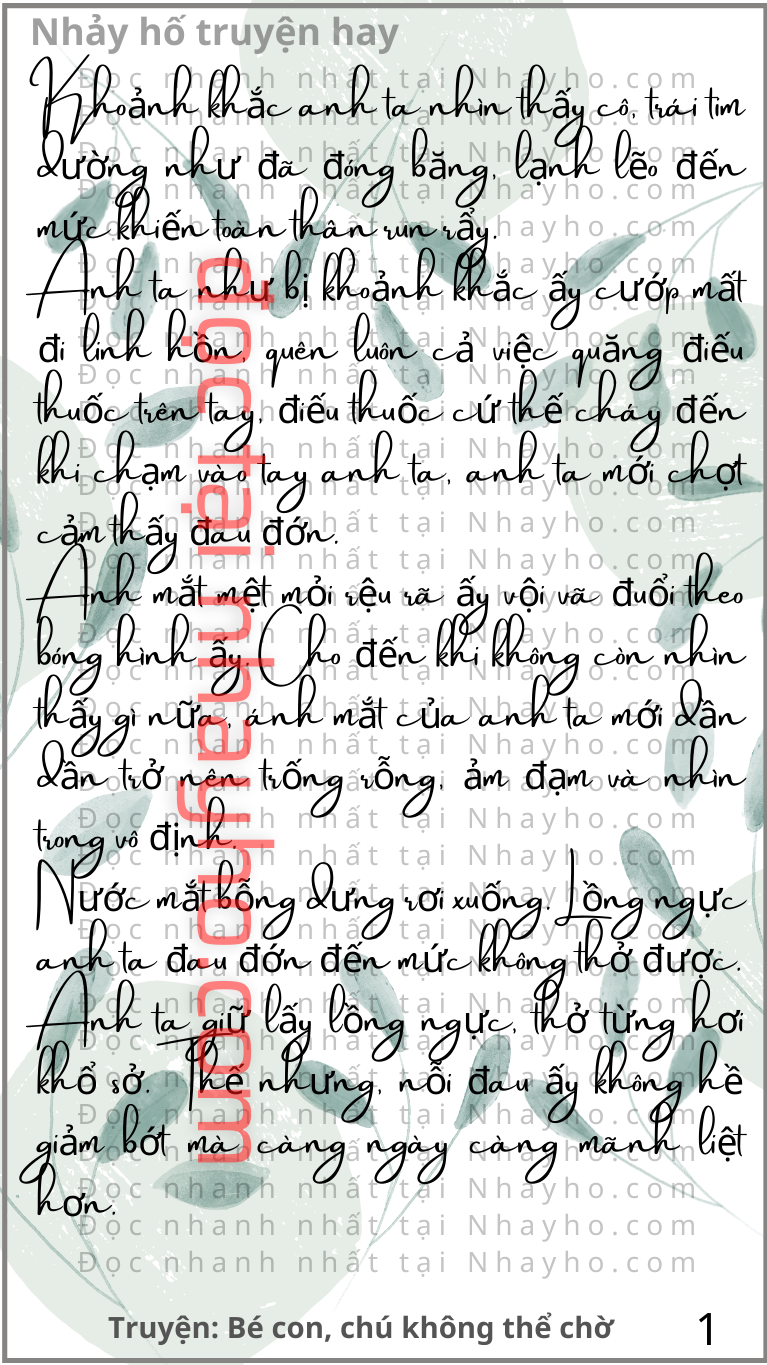 Nhảy hố truyện hay
Khoảnh khắc anh ta nhìn thấy cô, trái tim
dường như đã đóng băng, lạnh lẽo đến
mức khiến toàn thân run rẩy.
Anh ta như bị khoảnh khắc ấy cướp mất
đi linh hồn, quên luôn cả việc quăng điếu
thuốc trên tay, điếu thuốc cứ thế cháy đến
khi chạm vào tay anh ta, anh ta mới chợt
cảm thấy đau đớn.
Anh mắt mệt mỏi rệu rã ấy vội vã đuổi theo
bóng hình ấy. Cho đến khi không còn nhìn
thấy gì nữa, ánh mắt của anh ta mới dần
dần trở nên trống rỗng, ảm đạm và nhìn
trong vô định.
Nước mắt bỗng dưng rơi xuống. Lồng ngực
anh ta đau đớn đến mức không thở được.
Anh ta giữ lấy lồng ngực, thở từng hơi
khổ sở. Thế nhưng, nỗi đau ấy không hề
giảm bớt mà càng ngày càng mãnh liệt
hơn.
đọc tại nhayho.com
Đọc nhanh nhất tại Nhayho.com
Truyện: Bé con, chú không thể chờ
1